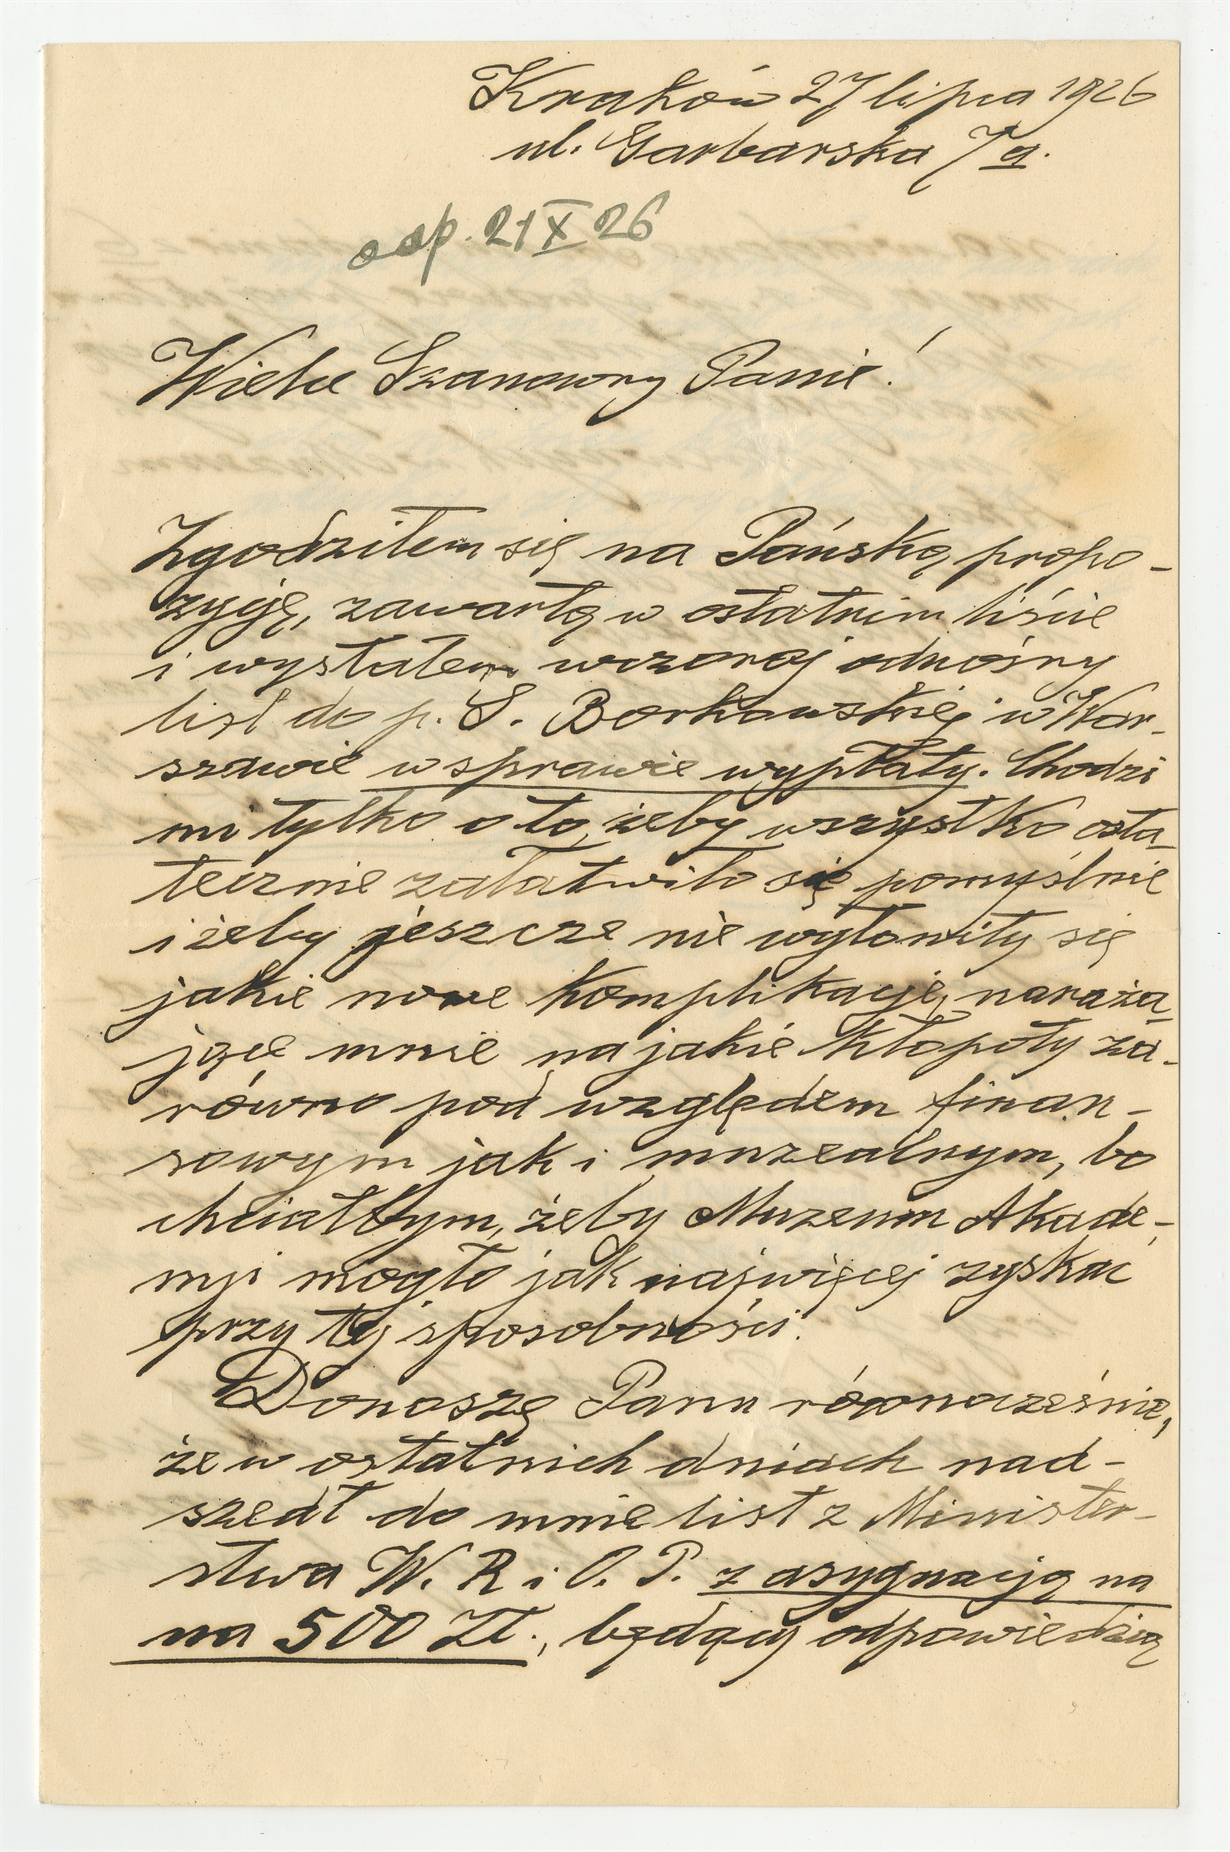 Kraków 27 lipca 1926
ul. Garbarska 7a.
odp. 21 X 26
Wielce Szanowny Panie!
Zgodziłem się na Pańską propo-
zycję, zawartą w ostatnim liście
i wysłałem wczoraj odnośny
list do p. S. Borkowskiej w War-
szawie w sprawie wypłaty. Chodzi
mi tylko o to, żeby wszystko osta-
tecznie załatwiło się pomyślnie
i żeby jeszcze nie wyłoniły się
jakie nowe komplikacje, naraża-
jące mnie na jakie kłopoty za-
równo pod względem finan-
sowym jak i muzealnym, bo
chciałbym, żeby Muzeum Akade-
mji mogło jak najwięcej zyskać
przy tej sposobności.
Donoszę Panu równocześnie,
że w ostatnich dniach nad-
szedł do mnie list z Minister-
stwa W. R i O. P. z asygnacją na
na 500 Zł., będący odpowiedzią